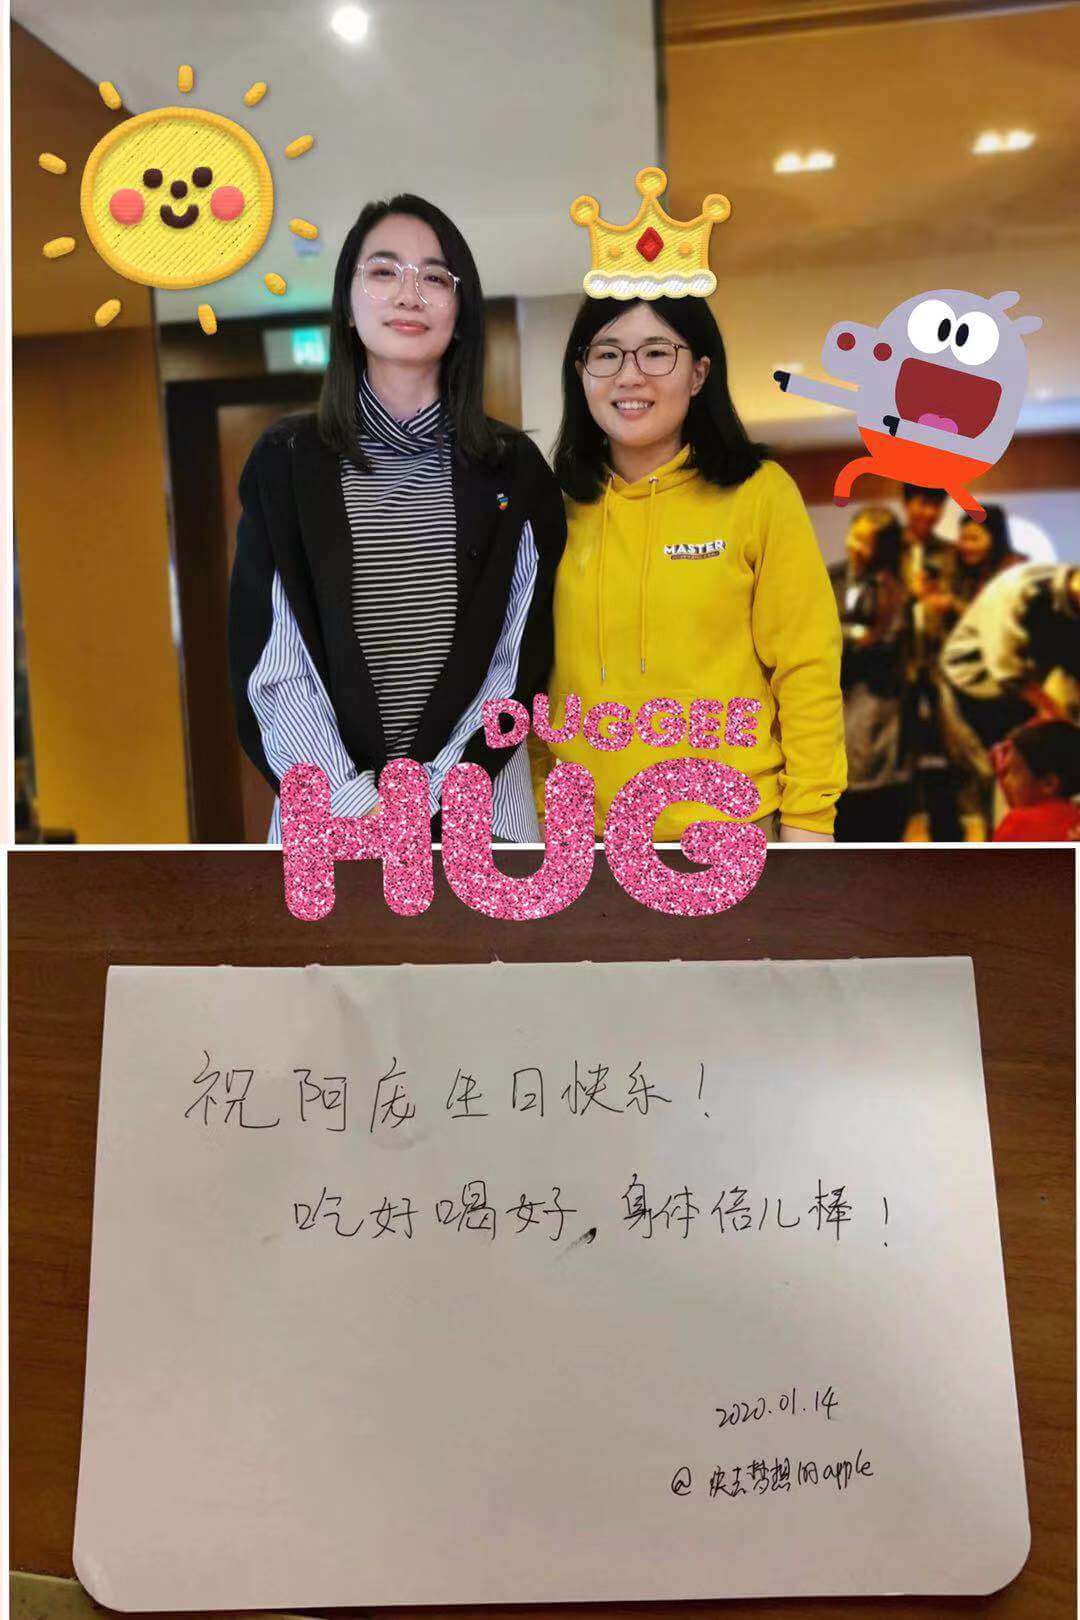 MASTER
DUGGEE
HUG
祝阿庞生日快乐！
吃好喝好，身体倍儿棒！
2020.01.14
@ 失去梦想的apple